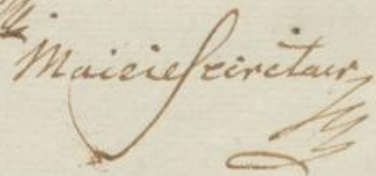 Maire Secretair